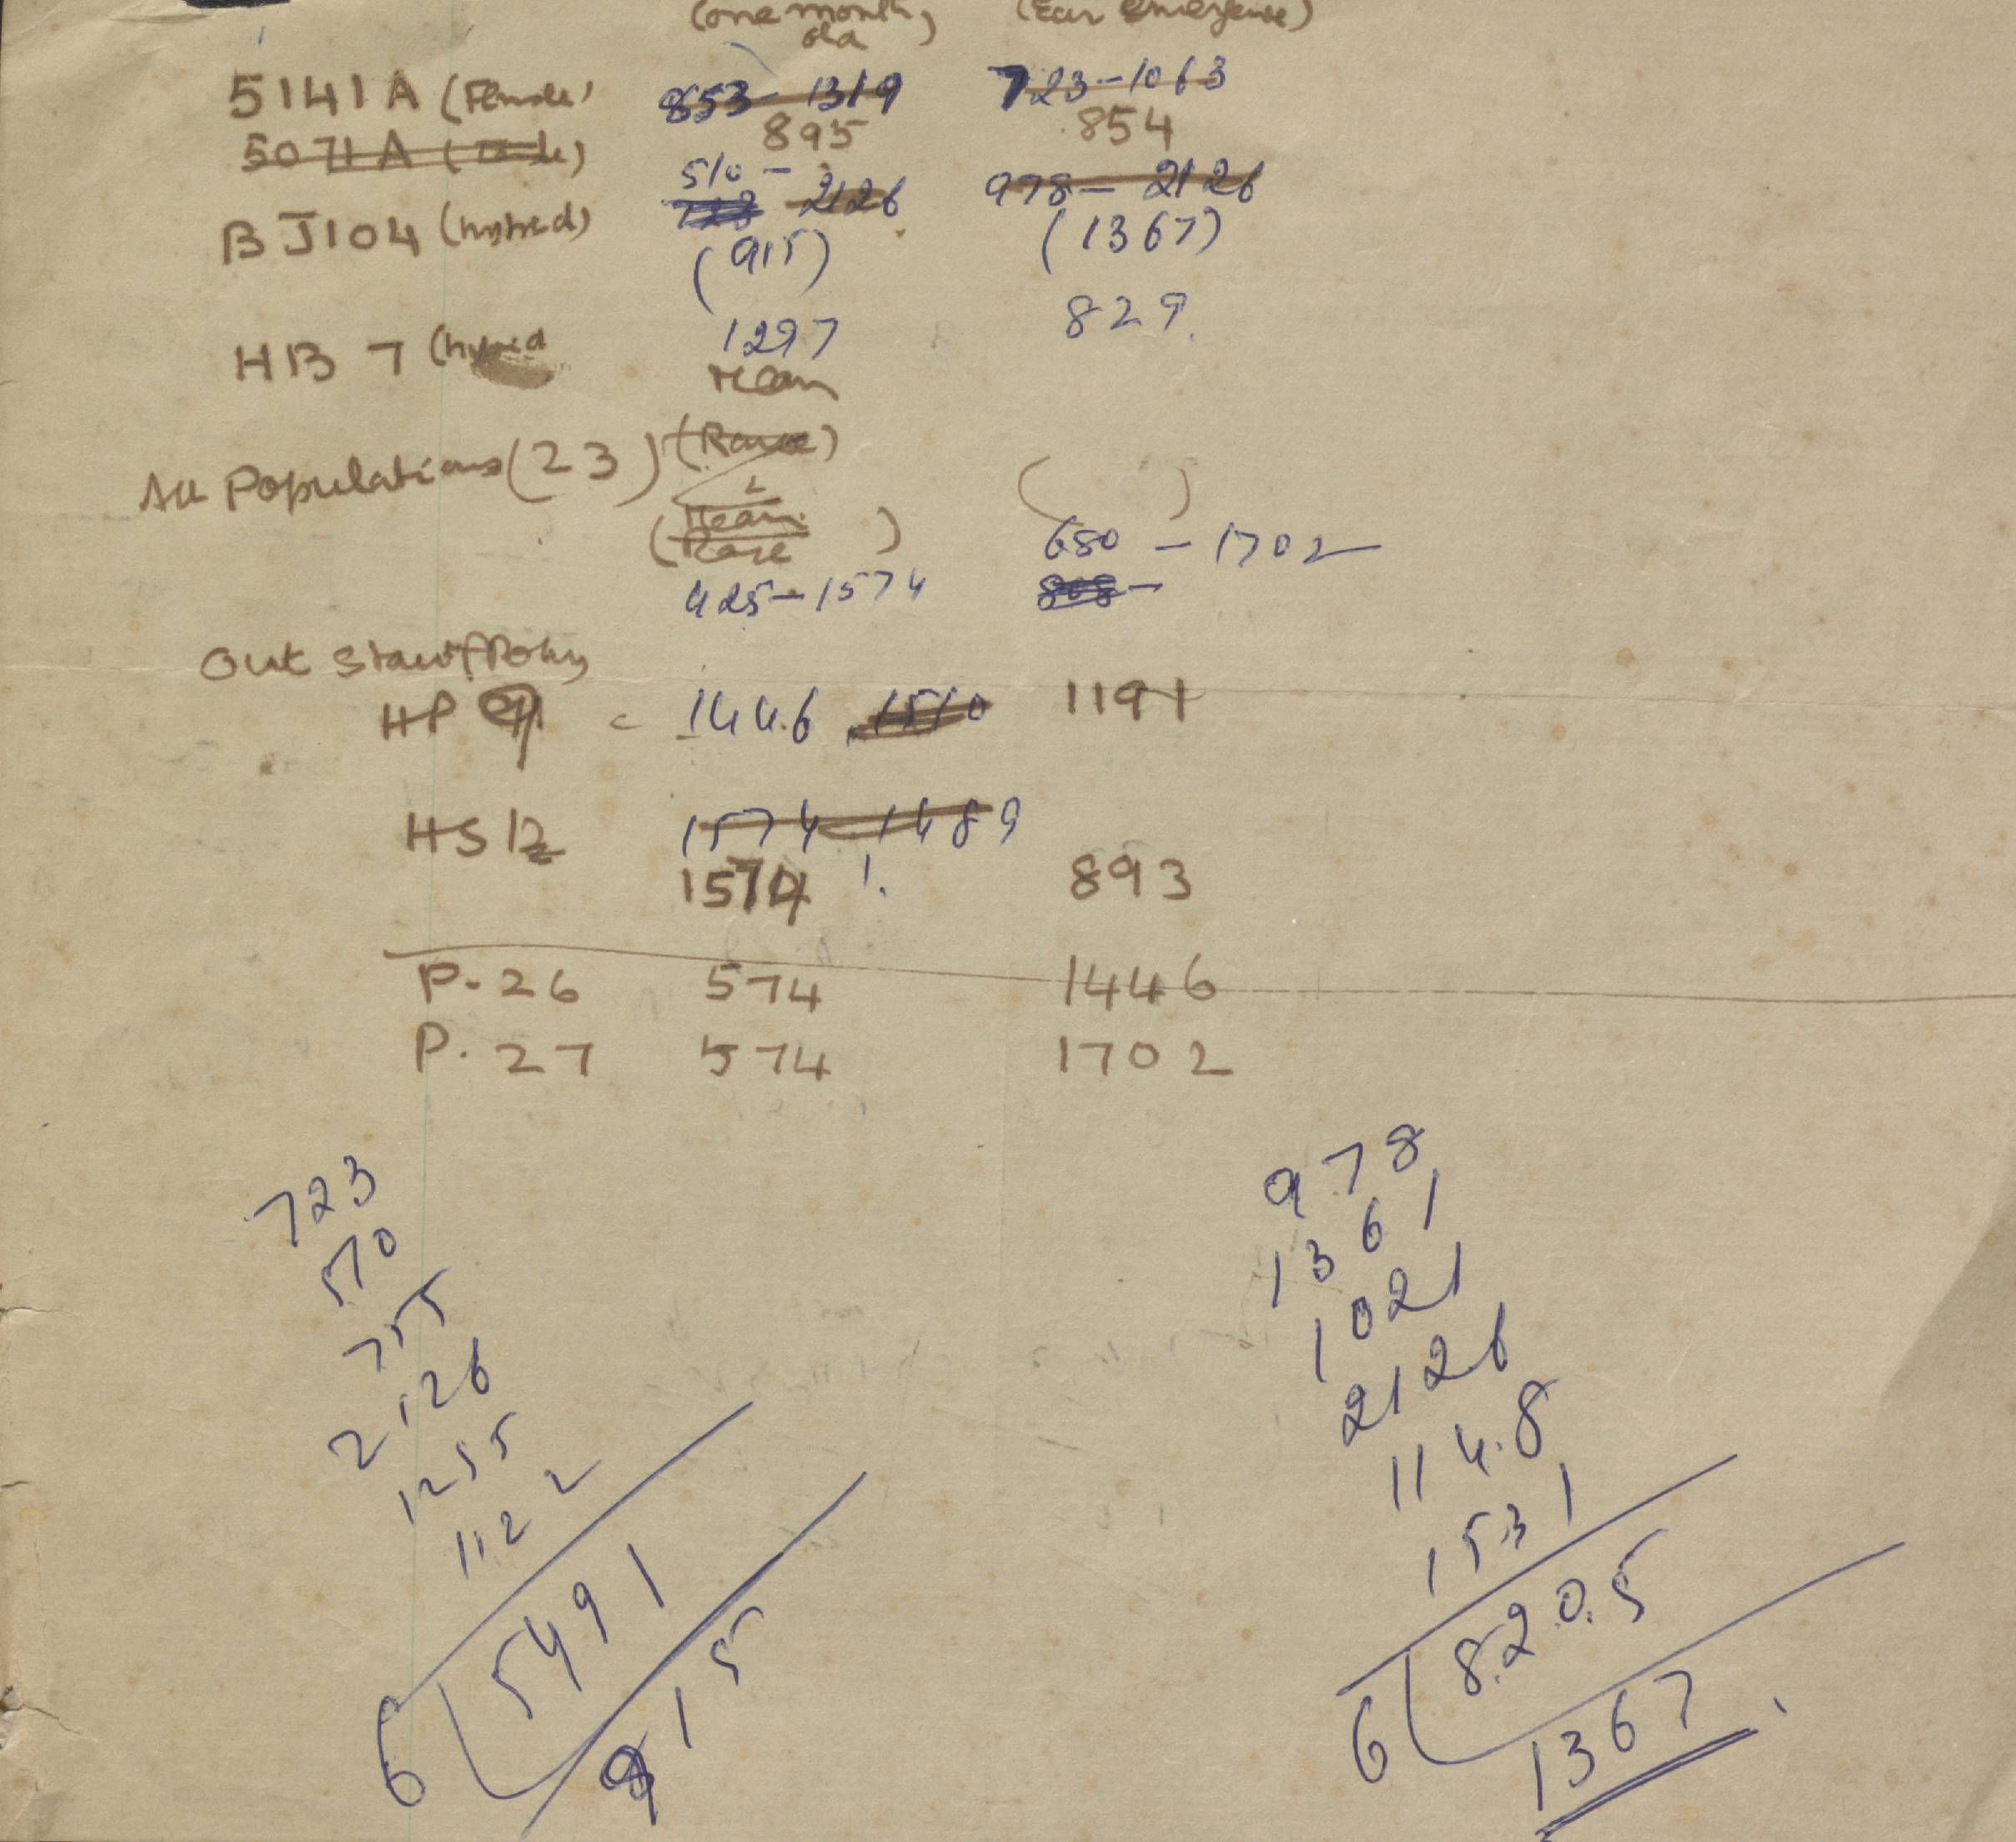 (one month (Ear emergence)
old)
5141A (Female) 853-1319 723-1063
895 854
5071A
510 -
BJ104 (hybrid) 723 2126 978-2126
(915) (1367)
HB 7 (hybrid 1297 829
Mean
All Populations (23) (Range)
( )
(Mean )
Range 680-1702
425-1574 808-
Out
HP = 1446 1510 1191
HS 12 1574 1489
1574 893
P. 26 574 1446
P. 27 574 1702
723
510
755
2126
1255
112 2
6 5491
915
978
1361
1021
2126
1148
1531
6 8205
1367